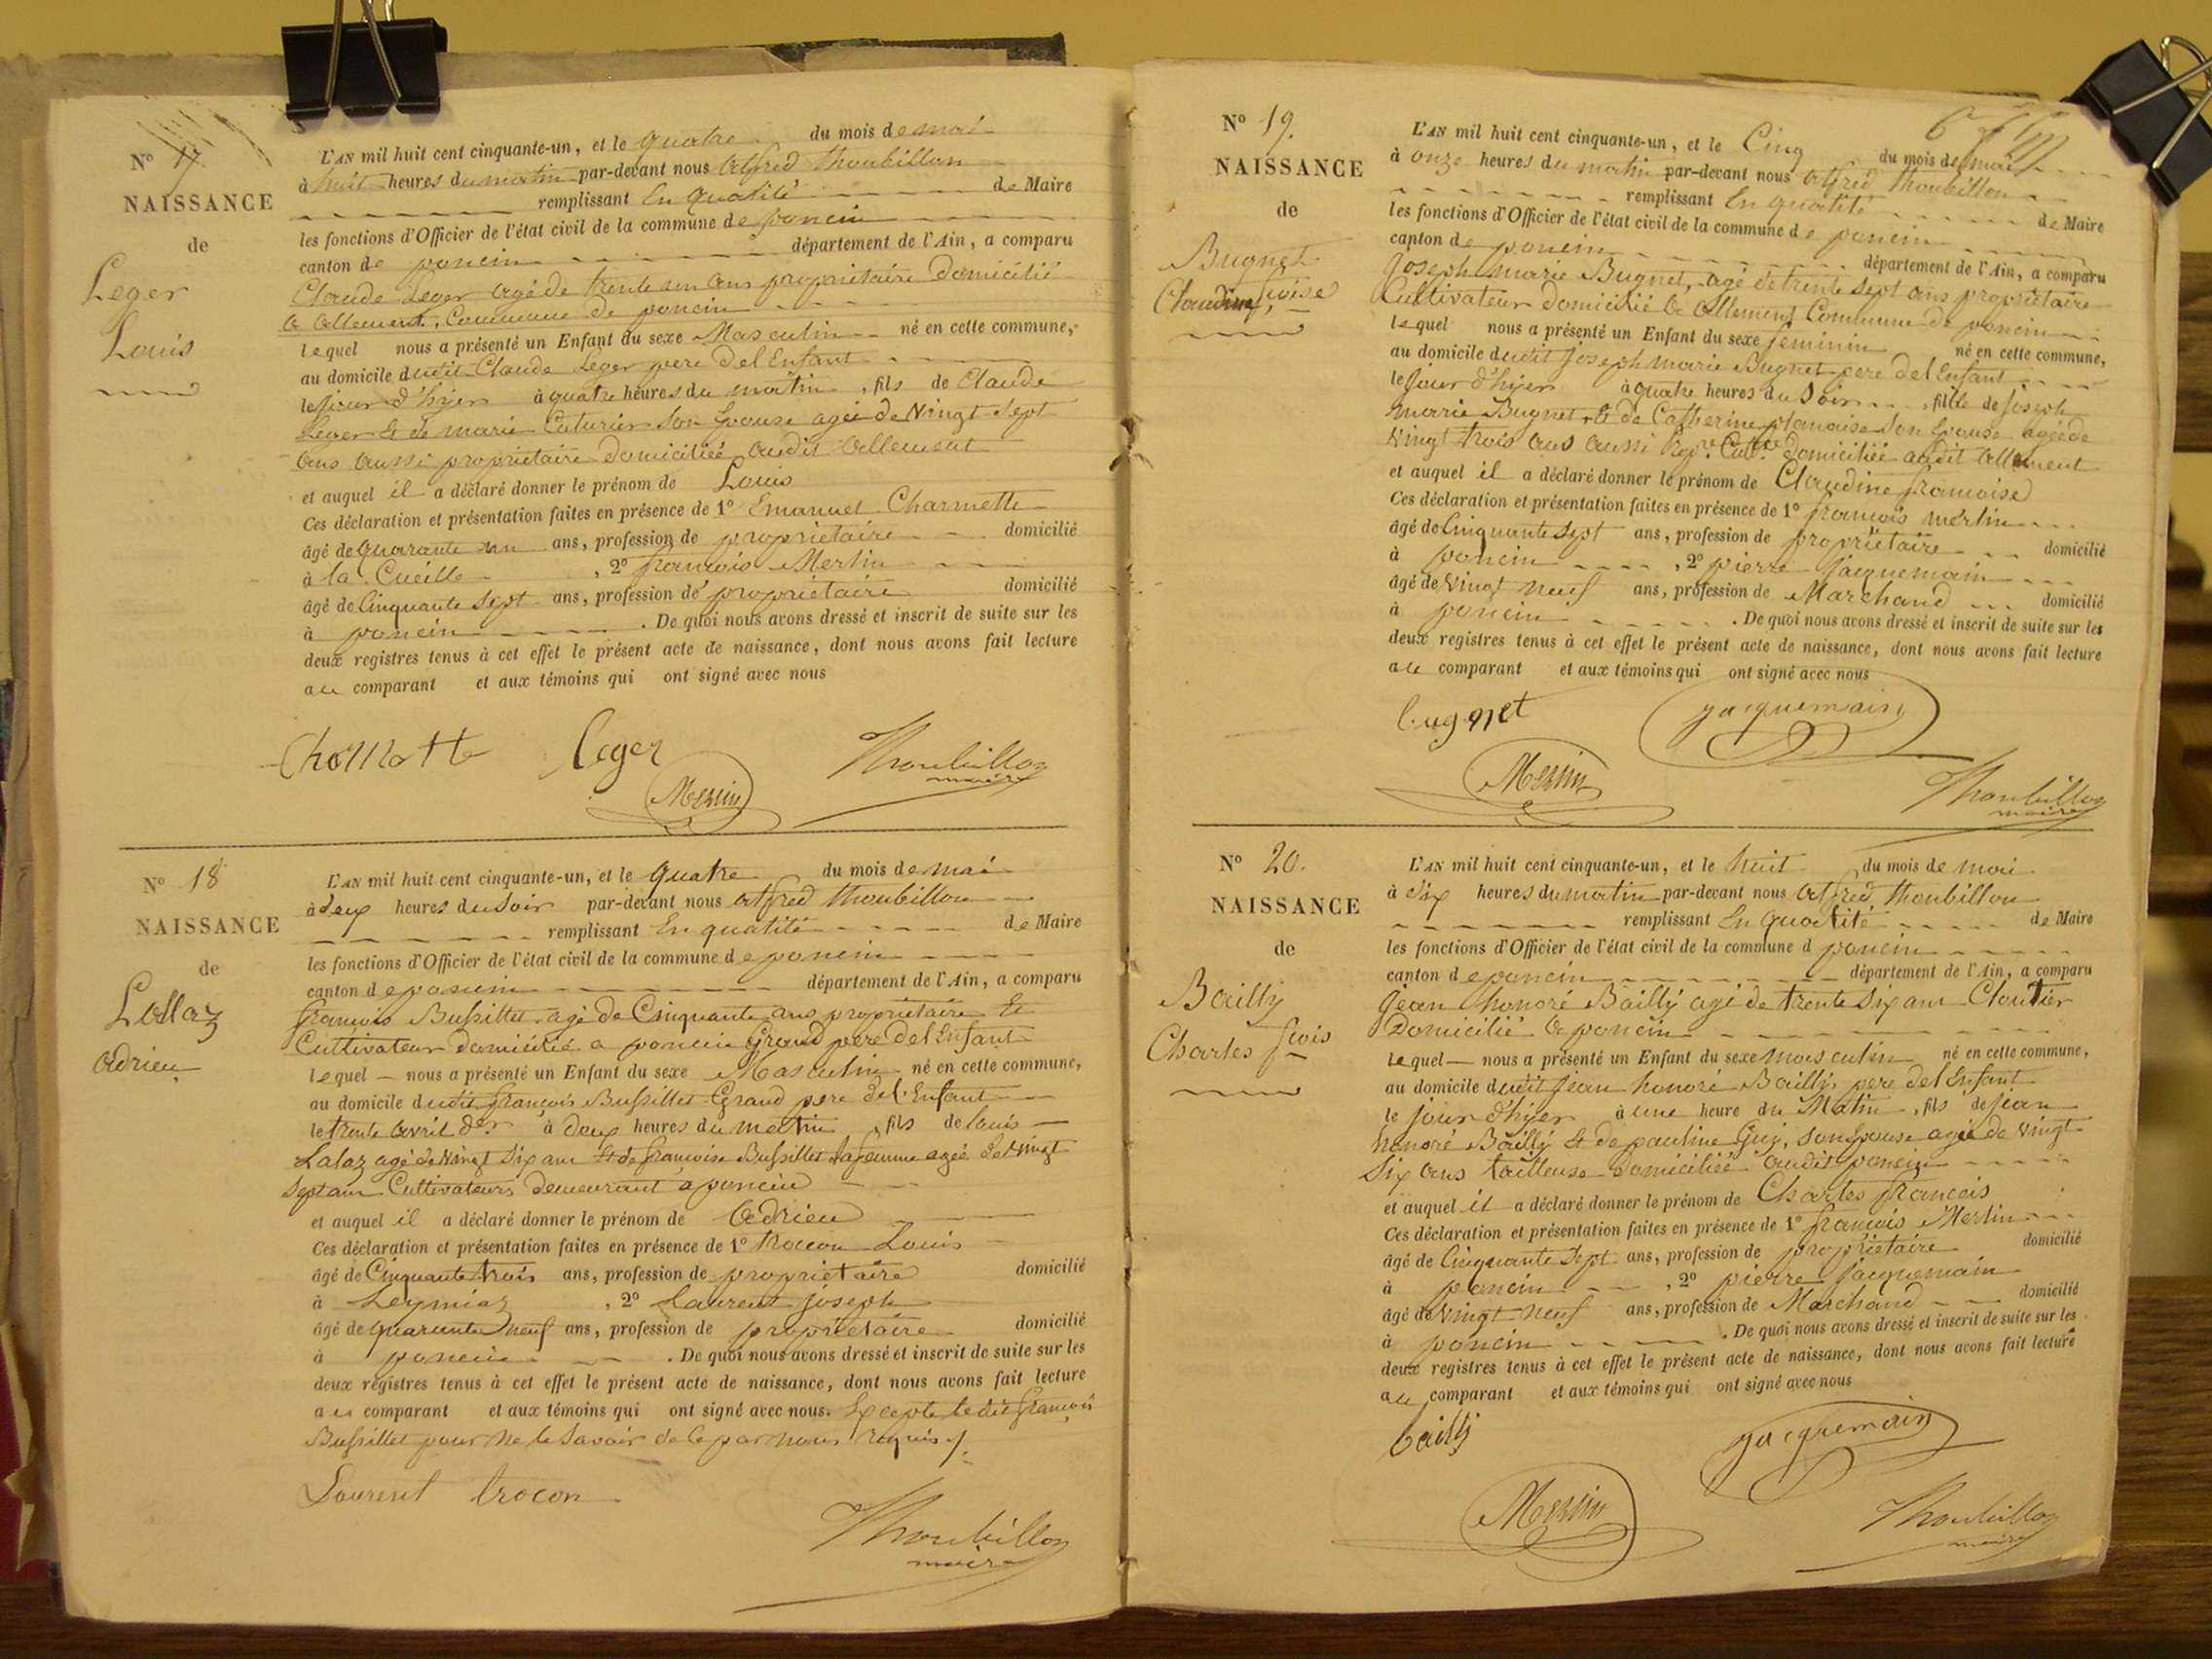 N° 17.
NAISSANCE
de
Leger
Louis
L'AN mil huit cent cinquante-un, et le quatre du mois de mai
à huit heures du matin par-devant nous Alfred Thoubillon
remplissant En qualité de Maire
les fonctions d'Officier de l'état civil de la commune de poncin
canton de poncin département de l'Ain, a comparu
Claude Leger agé de trente un ans propriétaire Domicilié
a allement, Commune de poncin
lequel nous a présenté un Enfant du sexe Masculin né en cette commune,
au domicile dudit Claude Leger pere del Enfant
le jour d'hyer à quatre heures du matin, fils de Claude
Leger & de marie Cuturier son Epouse agée de Vingt sept
ans aussi propriétaire domiciliée audit allement
et auquel il a déclaré donner le prénom de Louis
Ces déclaration et présentation faites en présence de 1° Emanuel Charmette
âgé de quarante un ans, profession de propriétaire domicilié
à la Cueille, 2° françois Merlin
âgé de Cinquante Sept ans, profession de propriétaire domicilié
à poncin. De quoi nous avons dressé et inscrit de suite sur les
deux registres tenus à cet effet le présent acte de naissance, dont nous avons fait lecture
au comparant et aux témoins qui ont signé avec nous
leger
Merlin
Thoubillon
maire
N° 18
NAISSANCE
de
Lallaz
adrien
L'AN mil huit cent cinquante-un, et le quatre du mois de mai
à deux heures du Soir par-devant nous Alfred Thoubillon
remplissant En qualité de Maire
les fonctions d'Officier de l'état civil de la commune de poncin
canton de poncin département de l'Ain, a comparu
françois Bussillet agé de Cinquante ans propriétaire Et
Cultivateur domicilié a poncin Grand pere del Enfant
lequel nous a présenté un Enfant du sexe Masculin né en cette commune,
au domicile dudit françois Bussillet Grand pere del Enfant
le trente avril der à deux heures du matin, fils de louis
Lalaz agé de Vingt Six ans & de francoise Bussillet Safemme agée de Vingt
Sept ans Cultivateurs demeurant a poncin
et auquel il a déclaré donner le prénom de Adrien
Ces déclaration et présentation faites en présence de 1° trocon Louis
âgé de Cinquante trois ans, profession de propriétaire domicilié
à Leymiaz, 2° laurent joseph
âgé de quarante neuf ans, profession de propriétaire domicilié
à poncin. De quoi nous avons dressé et inscrit de suite sur les
deux registres tenus à cet effet le présent acte de naissance, dont nous avons fait lecture
au comparant et aux témoins qui ont signé avec nous. Excepté ledit françois
Bussillet pour ne le Savoir de ce par nous requis
Laurent trocon
Thoubillon
maire
N° 19.
NAISSANCE
de
Bugnet
Claudine fçoise
L'AN mil huit cent cinquante-un, et le Cinq du mois de mai
à onze heures du matin par-devant nous Alfred Thoubillon
remplissant En qualité de Maire
les fonctions d'Officier de l'état civil de la commune de poncin
canton de poncin département de l'Ain, a comparu
Joseph marie Bugnet, agé de trente Sept ans propriétaire
Cultivateur domicilié a allement Commune de poncin
lequel nous a présenté un Enfant du sexe feminin né en cette commune,
au domicile dudit joseph marie Bugnet pere del Enfant
le jour d'hyer à quatre heures du Soir, fille de joseph
marie Bugnet & de Catherine planaise Son Epouse agée de
Vingt trois ans aussi domiciliée audit allement
et auquel il a déclaré donner le prénom de Claudine francoise
Ces déclaration et présentation faites en présence de 1° françois merlin
âgé de Cinquante Sept ans, profession de propriétaire domicilié
à poncin, 2° pierre jacquemain
âgé de Vingt neuf ans, profession de Marchand domicilié
à poncin. De quoi nous avons dressé et inscrit de suite sur les
deux registres tenus à cet effet le présent acte de naissance, dont nous avons fait lecture
au comparant et aux témoins qui ont signé avec nous
bugnet jacquemain
Merlin
Thoubillon
maire
N° 20.
NAISSANCE
de
Bailly
Charles fçois
L'AN mil huit cent cinquante-un, et le huit du mois de mai
à dix heures du matin par-devant nous Alfred Thoubillon
remplissant En qualité de Maire
les fonctions d'Officier de l'état civil de la commune d poncin
canton de poncin département de l'Ain, a comparu
jean honoré Bailly agé de trente Six ans Cloutier
Domicilié a poncin
lequel nous a présenté un Enfant du sexe masculin né en cette commune,
au domicile dudit jean honoré Bailly, pere del Enfant
le jour d'hyer à une heure du Matin, fils de jean
honoré Bailly & de pauline Guy, son Epouse agée de Vingt
Six ans tailleuse domiciliée audit poncin
et auquel il a déclaré donner le prénom de Charles francois
Ces déclaration et présentation faites en présence de 1° françois Merlin
âgé de Cinquante Sept ans, profession de propriétaire domicilié
à poncin, 2° pierre jacquemain
âgé de Vingt neuf ans, profession de Marchand domicilié
à poncin. De quoi nous avons dressé et inscrit de suite sur les
deux registres tenus à cet effet le présent acte de naissance, dont nous avons fait lecture
au comparant et aux témoins qui ont signé avec nous
bailly jacquemain
Merlin
Thoubillon
maire